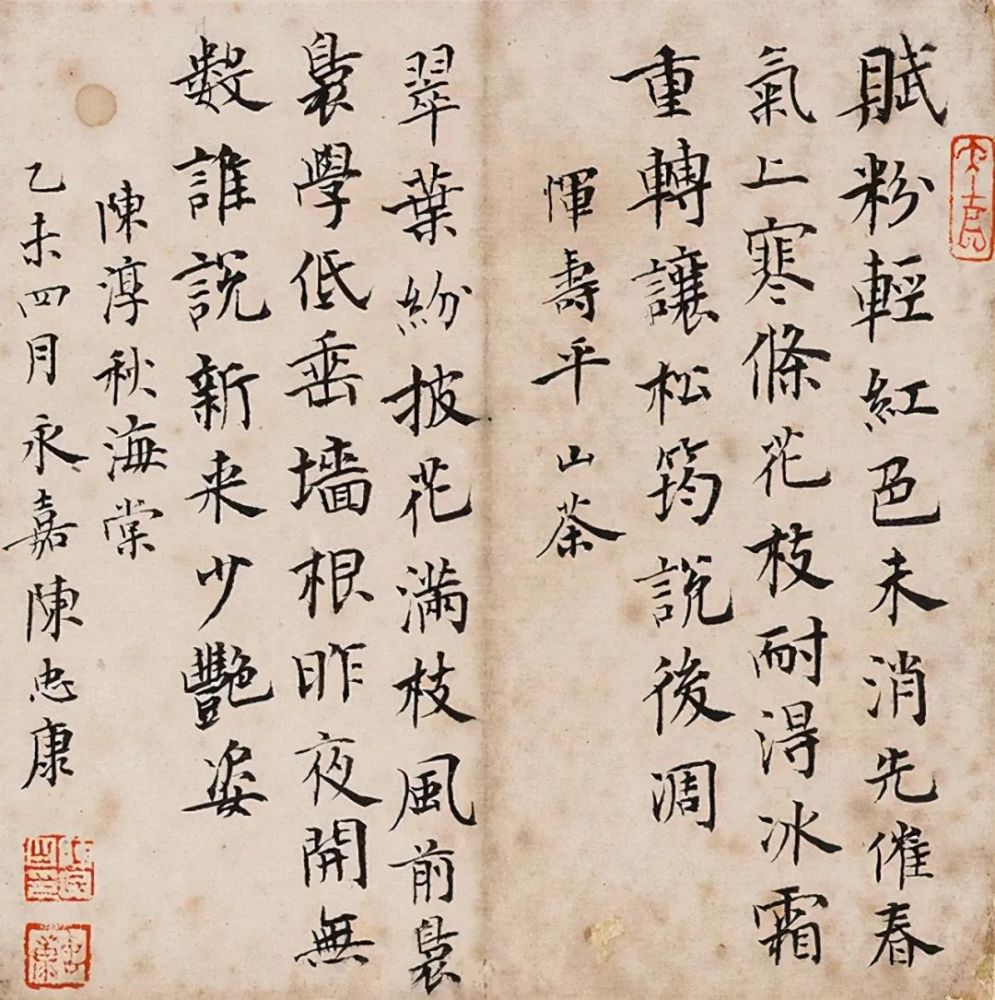 賦粉輕紅色未消先催春
氣上寒條花枝耐得冰霜
重轉讓松筠說後凋
惲壽平 山茶
翠葉紛披花滿枝風前裊
裊學低垂墻根昨夜開無
數誰說新来少艷姿
陳淳秋海棠
乙未四月永嘉陳忠康